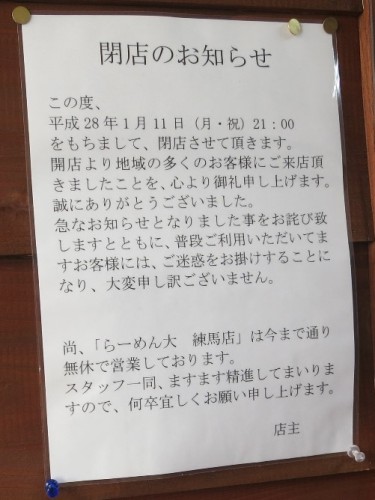 閉店のお知らせ
この度、
平成28年1月11日（月・祝）21：00
をもちまして、閉店させて頂きます。
開店より地域の多くのお客様にご来店頂
きましたことを、心より御礼申し上げます。
誠にありがとうございました。
急なお知らせとなりました事をお詫び致
しますとともに、普段ご利用いただいてま
すお客様には、ご迷惑をお掛けすることに
なり、大変申し訳ございません。
尚、「らーめん大　練馬店」は今まで通り
無休で営業しております。
スタッフ一同、ますます精進してまいりま
すので、何卒宜しくお願い申し上げます。
店主